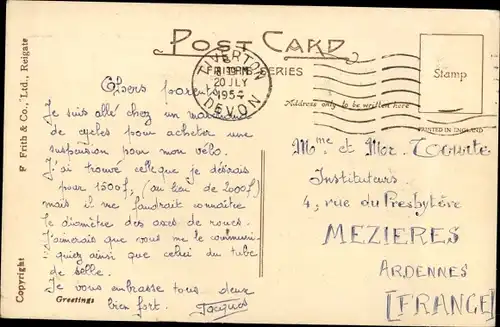 POST CARD
FRITH'S SERIES
TIVERTON
20 JLY
1954
DEVON
Stamp
Address only to be written here
PRINTED IN ENGLAND
Copyright
F Frith & Co., Ltd., Reigate
Chers parents
Je suis allé chez un marchand
de cycles pour acheter une
suspension pour mon vélo.
J'ai trouvé celle que je désirais
pour 1500f, (au lieu de 2000f)
mais il me faudrait connaître
le diamètre des axes de roues.
J'aimerais que vous me le communi-
quiez ainsi que celui du tube
de selle.
Je vous embrasse tous deux
bien fort. Jacques
Greetings
Mme et Mor
Instituteurs
4, rue du Presbytère
MEZIERES
ARDENNES
[FRANCE]